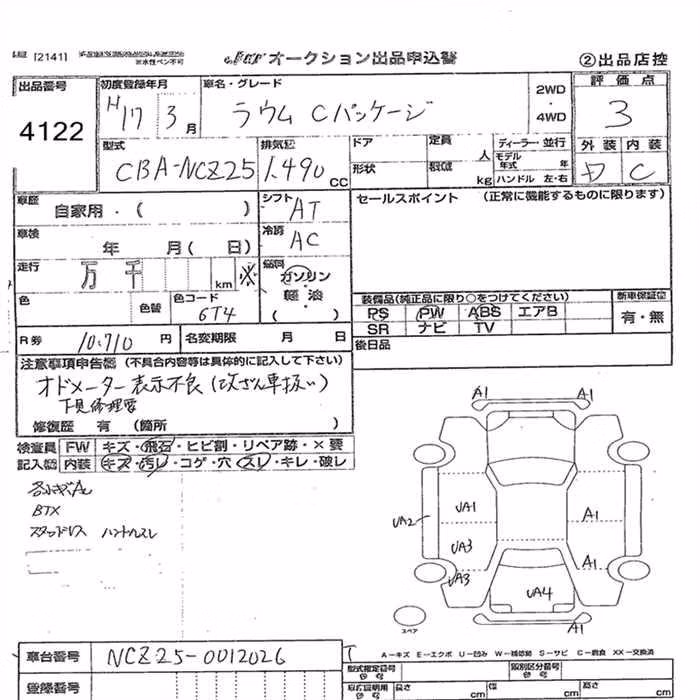 [2141] ※水性ペン不可 オークション出品申込書 ②出品店控
出品番号 初度登録年月 車名・グレード 2WD・4WD 評価点
4122 H17 3月 ラウム Cパッケージ 3
型式 排気量 ドア 定員 人 ディーラー・並行 外装 内装
CBA-NCZ25 1.490 CC 形状 積載 kg モデル年式 年 ハンドル 左・右 D C
車歴 自家用・( ) シフト AT セールスポイント (正常に機能するものに限ります)
車検 年 月( 日) 冷房 AC
走行 万 千 km ※ 燃料 ガソリン 軽油 ( )
色 色替 色コード 6T4 装備品(純正品に限り○をつけてください) 新車保証書
PS PW ABS エアB 有・無
SR ナビ TV
R券 10.710 円 名変期限 月 日 後日品
注意事項申告欄 (不具合内容等は具体的に記入して下さい)
オドメーター表示不良(改ざん車扱い)
下見修理要
修復歴 有 (箇所 )
検査員 FW キズ・飛石・ヒビ割・リペア跡・×要
記入欄 内装 キズ・汚レ・コゲ・穴・スレ・キレ・破レ
BTX
スタッドレス ハンドルスレ
A1 A1
UA1 A1
UA2
UA3 A1
UA3
UA4
A1
スペア
A―キズ E―エクボ U―凹み W―補修跡 S―サビ C―腐食 XX―交換済
車台番号 NCZ25-0012026 型式指定番号 類別区分番号
登録番号 長さ cm 幅 cm 高さ cm